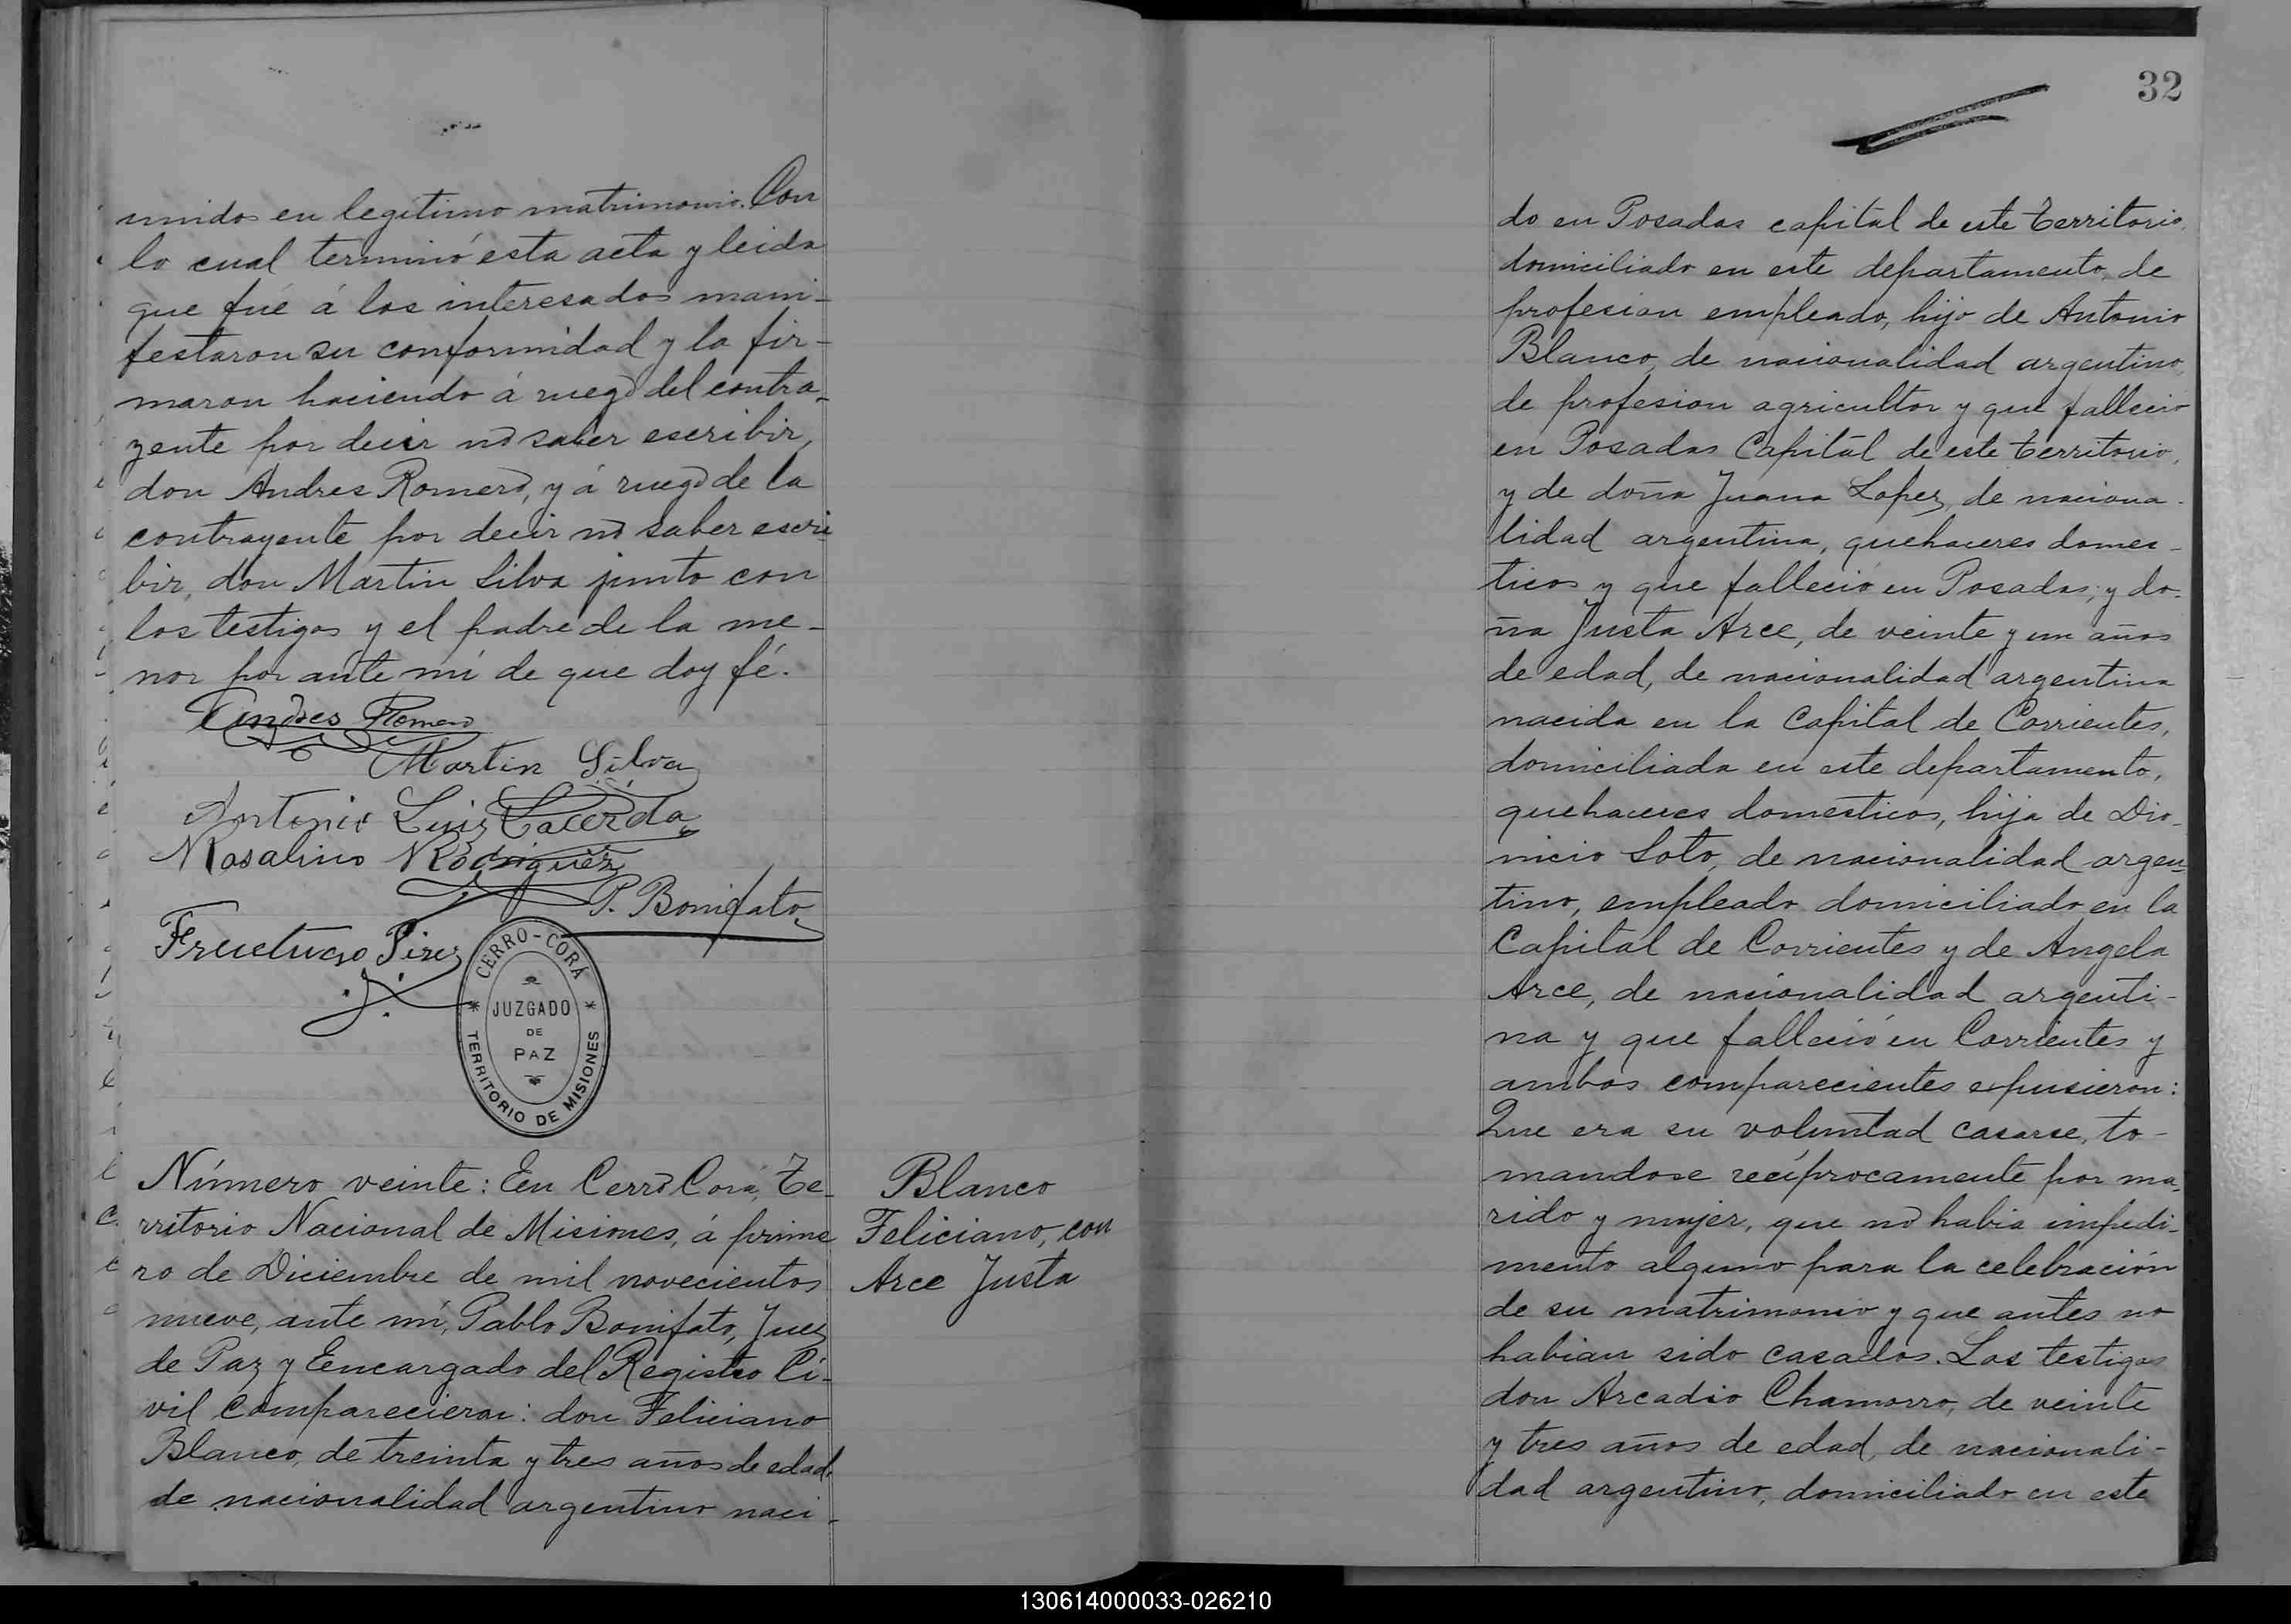 unidos en legítimo matrimonio. Con
lo cual terminó esta acta y leida
que fué á los interesados mani-
festaron su conformidad y la fir-
maron haciendo á ruego del contra-
yente por decir no saber escribir,
don Andres Romero, y á ruego de la
contrayente por decir no saber escri-
bir, don Martin Silva junto con
los testigos y el padre de la me-
nor por ante mí de que doy fé.
Andres Romero
Martin Silva
Antonio Luiz Lacerda
Rosalino Rodriguez
P. Bonifato
Fructuoso Pirez
CERRO-CORÁ
JUZGADO
DE
PAZ
TERRITORIO DE MISIONES
Número veinte: En Cerro Corá, Te-
rritorio Nacional de Misiones, á prime
ro de Diciembre de mil novecientos
nueve, ante mí, Pablo Bonifato, Juez
de Paz y Eencargado del Registro Ci-
vil comparecieron: don Feliciano
Blanco, de treinta y tres años de edad,
de nacionalidad argentino naci-
Blanco
Feliciano, con
Arce Justa
32
do en Posadas capital de este territorio,
domiciliado en este departamento, de
profesion empleado, hijo de Antonio
Blanco, de nacionalidad argentino,
de profesion agricultor y que fallecio
en Posadas Capital de este territorio,
y de doña Juana Lopez, de naciona-
lidad argentina, quehaceres domes-
ticos y que falleció en Posadas; y do-
ña Justa Arce, de veinte y un años
de edad, de nacionalidad argentina
nacida en la Capital de Corrientes,
domiciliada en este departamento,
quehaceres domesticos, hija de Dio-
nicio Soto, de nacionalidad argen-
tino, empleado domiciliado en la
Capital de Corrientes y de Angela
Arce, de nacionalidad argenti-
na y que falleció en Corrientes y
ambos comparecientes expusieron:
Que era su voluntad casarse, to-
mandose recíprocamente por ma-
rido y mujer, que no habia impedi-
mento alguno para la celebración
de su matrimonio y que antes no
habian sido casados. Los testigos
don Arcadio Chamorro, de veinte
y tres años de edad, de nacionali-
dad argentino, domiciliado en este
130614000033-026210